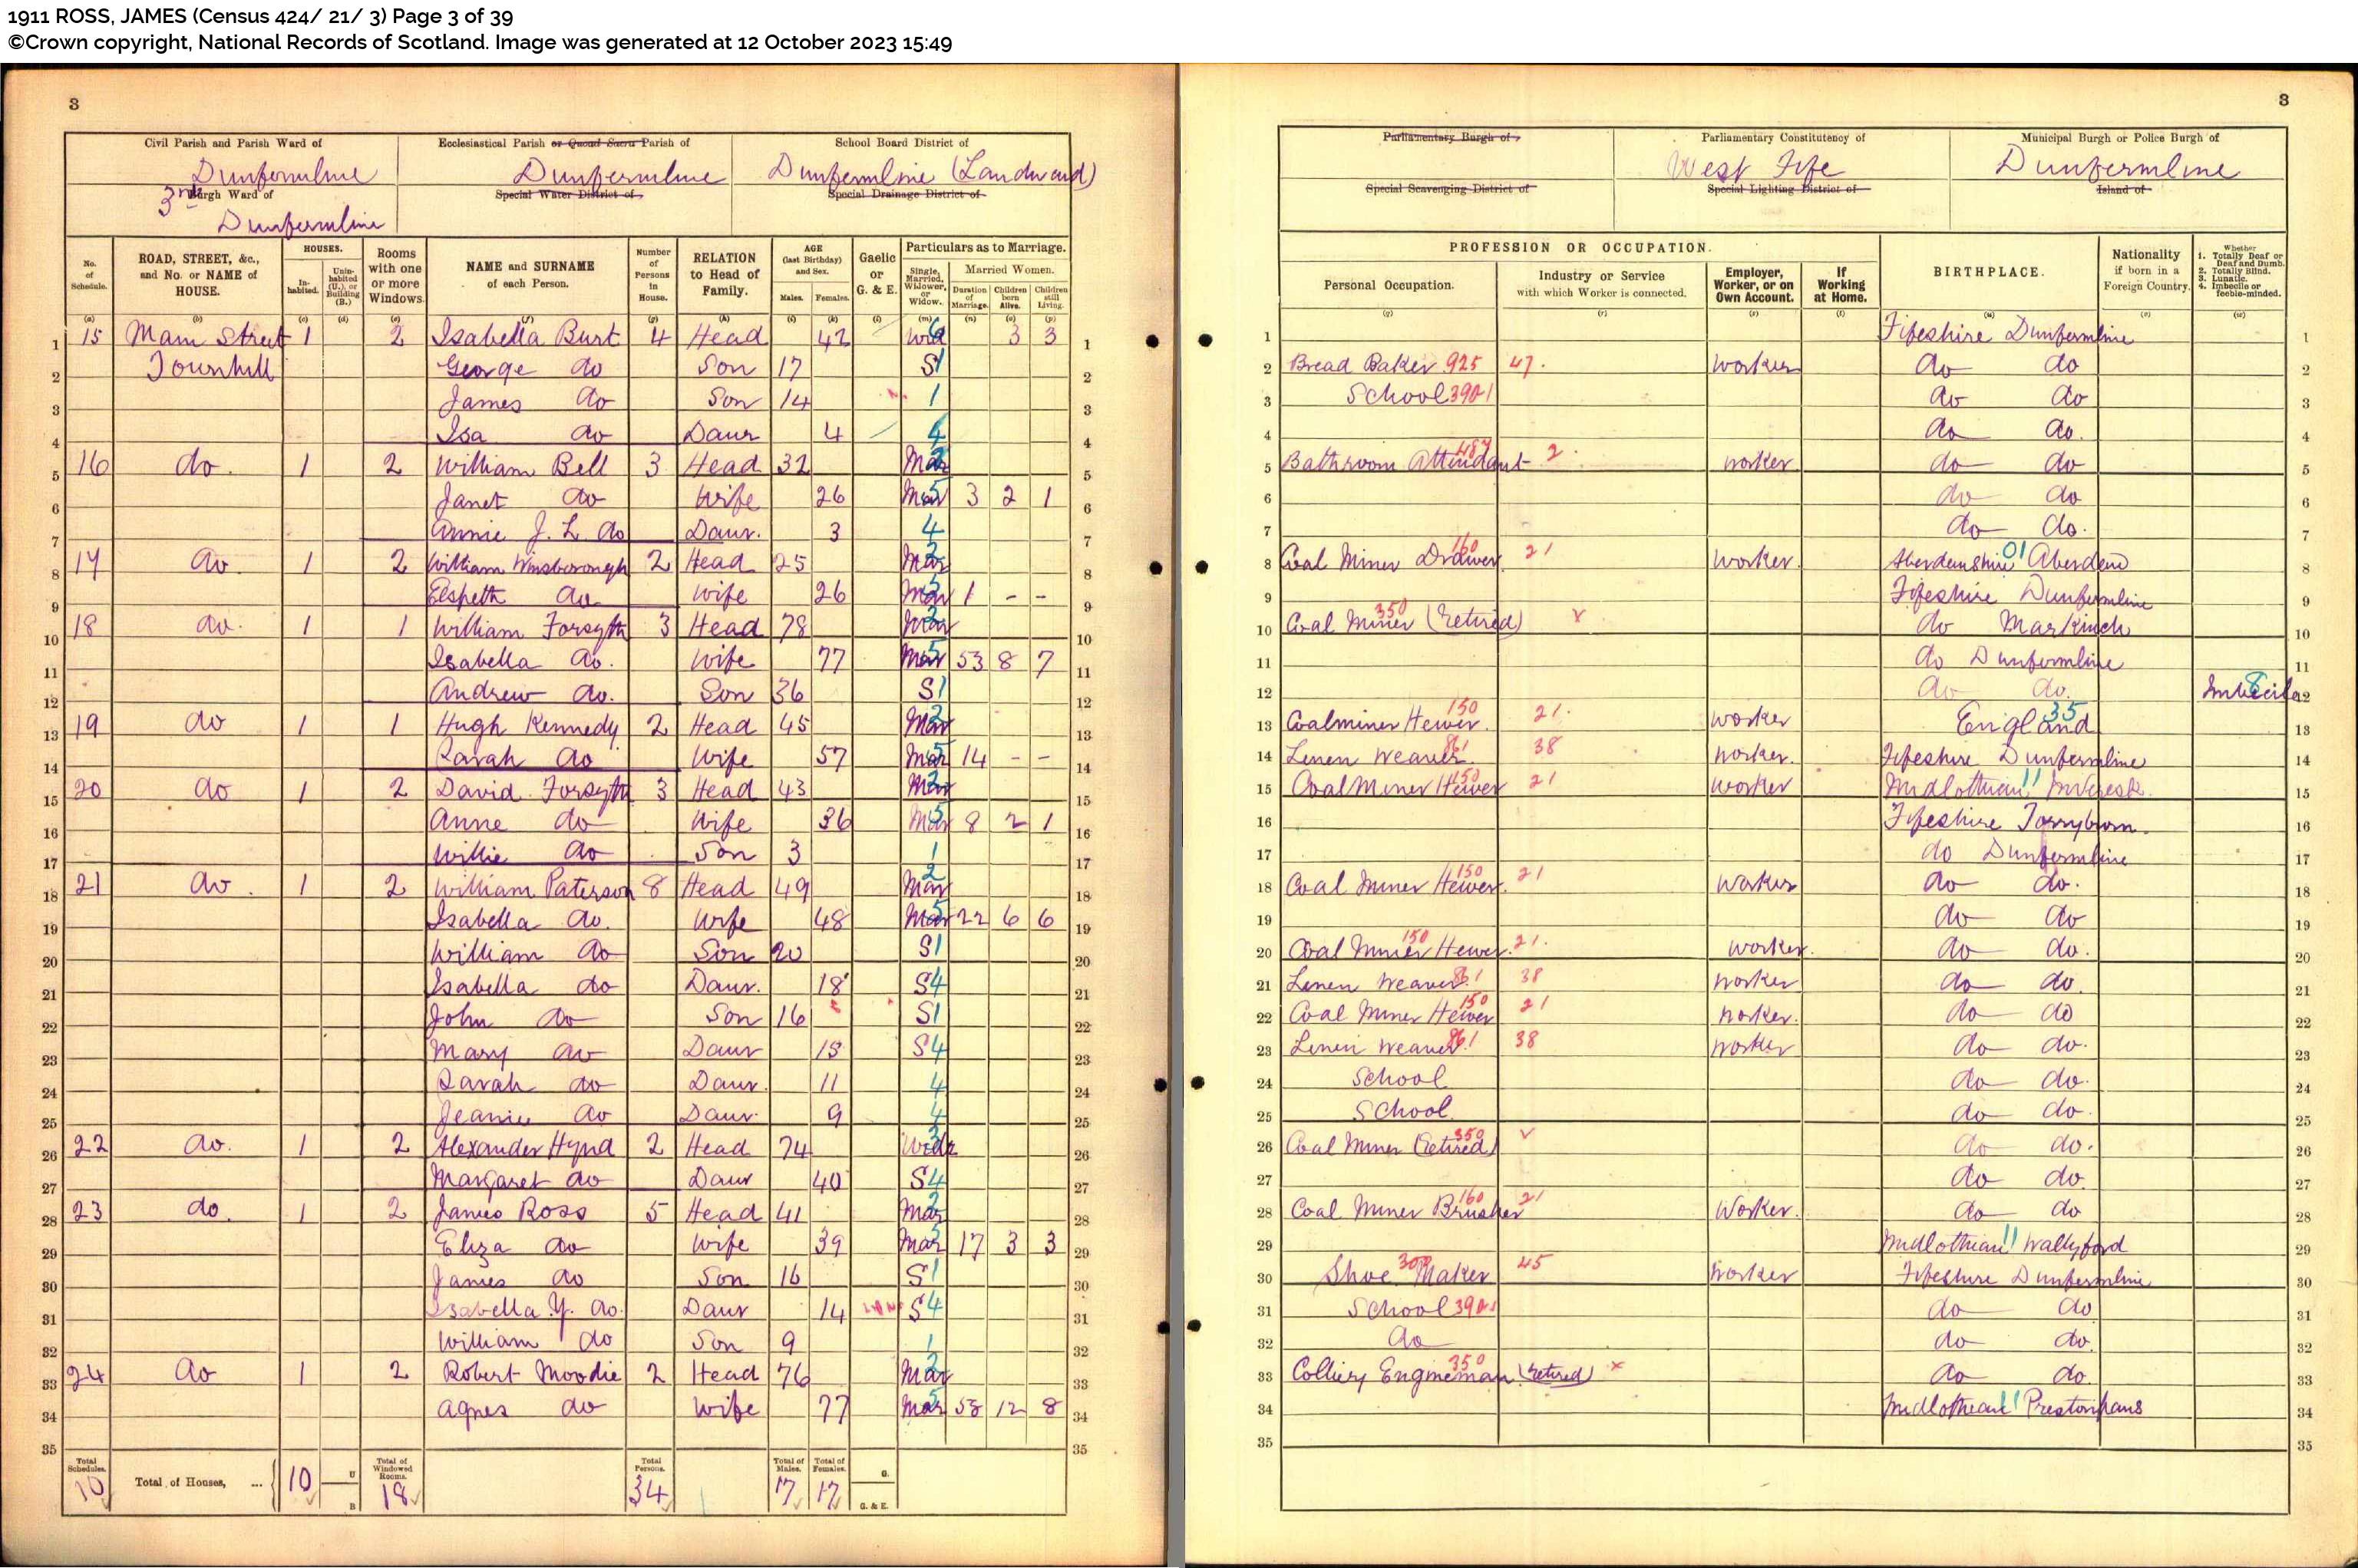 1911 ROSS, JAMES (Census 424/ 21/ 3) Page 3 of 39
©Crown copyright, National Records of Scotland. Image was generated at 12 October 2023 15:49
3 3
Civil Parish and Parish Ward of Ecclesiastical Parish or Quoad Sacra Parish of School Board District of Parliamentary Burgh of Parliamentary Constitutency of Municipal Burgh or Police Burgh of
Dunfermline Dunfermline Dunfermline (Landward) West Fife Dunfermline
3rd Burgh Ward of Special Water District of Special Drainage District of Special Scavenging District of Special Lighting District of Island of
Dunfermline
No. of Schedule. ROAD, STREET, &c., and No. or NAME of HOUSE. HOUSES. Inhabited. Uninhabited (U.), or Building (B.) Rooms with one or more Windows. NAME and SURNAME of each Person. Number of Persons in House. RELATION to Head of Family. AGE (last Birthday) and Sex. Males. Females. Gaelic or G. & E. Particulars as to Marriage. Single, Married, Widower, or Widow. Married Women. Duration of Marriage. Children born Alive. Children still Living.
PROFESSION OR OCCUPATION. Personal Occupation. Industry or Service with which Worker is connected. Employer, Worker, or on Own Account. If Working at Home. BIRTHPLACE. Nationality if born in a Foreign Country. Whether 1. Totally Deaf or Deaf and Dumb. 2. Totally Blind. 3. Lunatic. 4. Imbecile or feeble-minded.
1 15 Main Street 1 2 Isabella Burt 4 Head 42 Wid 6 3 3 1 1 Fifeshire Dunfermline 1
2 Townhill George do Son 17 S 1 2 2 Bread Baker 925 47. Worker do do 2
3 James do Son 14 1 3 3 School 390 1 do do 3
4 Isa do Daur 4 4 4 4 do do. 4
5 16 do. 1 2 William Bell 3 Head 32 Mar 2 5 5 Bathroom Attendant 2. Worker do do 5
6 Janet do Wife 26 Mar 5 3 2 1 6 6 do do 6
7 Annie J. L. do Daur. 3 4 7 7 do do. 7
8 17 do. 1 2 William Winsborough 2 Head 25 Mar 2 8 8 Coal Miner Drawer 160 21 Worker. Aberdeenshire 01 Aberdeen 8
9 Elspeth do Wife 26 Mar 5 1 - - 9 9 Fifeshire Dunfermline 9
10 18 do. 1 1 William Forsyth 3 Head 78 Mar 2 10 10 Coal Miner (retired) 350 x do Markinch 10
11 Isabella do. Wife 77 Mar 5 53 8 7 11 11 do Dunfermline 11
12 Andrew do. Son 36 S 1 12 12 do do. Imbecile 8 12
13 19 do 1 1 Hugh Kennedy 2 Head 45 Mar 2 13 13 Coalminer Hewer 150 21. Worker England 35 13
14 Sarah do Wife 57 Mar 5 14 - - 14 14 Linen Weaver 861 38 Worker. Fifeshire Dunfermline 14
15 20 do 1 2 David Forsyth 3 Head 43 Mar 2 15 15 Coal Miner Hewer 150 21 Worker Midlothian 11 Inveresk 15
16 Anne do Wife 36 Mar 5 8 2 1 16 16 Fifeshire Torryburn 16
17 Willie do Son 3 1 17 17 do Dunfermline 17
18 21 do. 1 2 William Paterson 8 Head 49 Mar 2 18 18 Coal Miner Hewer 150 21 Worker do do. 18
19 Isabella do. Wife 48 Mar 5 22 6 6 19 19 do do 19
20 William do Son 20 S 1 20 20 Coal Miner Hewer 150 21. Worker. do do. 20
21 Isabella do Daur. 18 S 4 21 21 Linen Weaver 861 38 Worker do do. 21
22 John do Son 16 S 1 22 22 Coal Miner Hewer 150 21 Worker. do do 22
23 Mary do Daur 15 S 4 23 23 Linen Weaver 861 38 Worker do do. 23
24 Sarah do Daur. 11 4 24 24 School do do. 24
25 Jeanie do Daur. 9 4 25 25 School do do. 25
26 22 do. 1 2 Alexander Hynd 2 Head 74 Widr 3 26 26 Coal Miner (retired) 350 do do. 26
27 Margaret do Daur 40 S 4 27 27 do do. 27
28 23 do. 1 2 James Ross 5 Head 41 Mar 2 28 28 Coal Miner Brusher 160 21 Worker. do do 28
29 Eliza do Wife 39 Mar 5 17 3 3 29 29 Midlothian 11 Wallyford 29
30 James do Son 16 S 1 30 30 Shoe Maker 45 Worker Fifeshire Dunfermline 30
31 Isabella Y. do. Daur 14 S 4 31 31 School 390 1 do do 31
32 William do Son 9 1 32 32 do do do. 32
33 24 do 1 2 Robert Moodie 2 Head 76 Mar 2 33 33 Colliery Engineman (retired) 350 x do do. 33
34 Agnes do Wife 77 Mar 5 53 12 8 34 34 Midlothian 11 Prestonpans 34
35 35 35 35
Total Schedules. 10 Total of Houses, ... 10 U B Total of Windowed Rooms. 18 Total Persons. 34 Total of Males. 17 Total of Females. 17 G. G. & E.